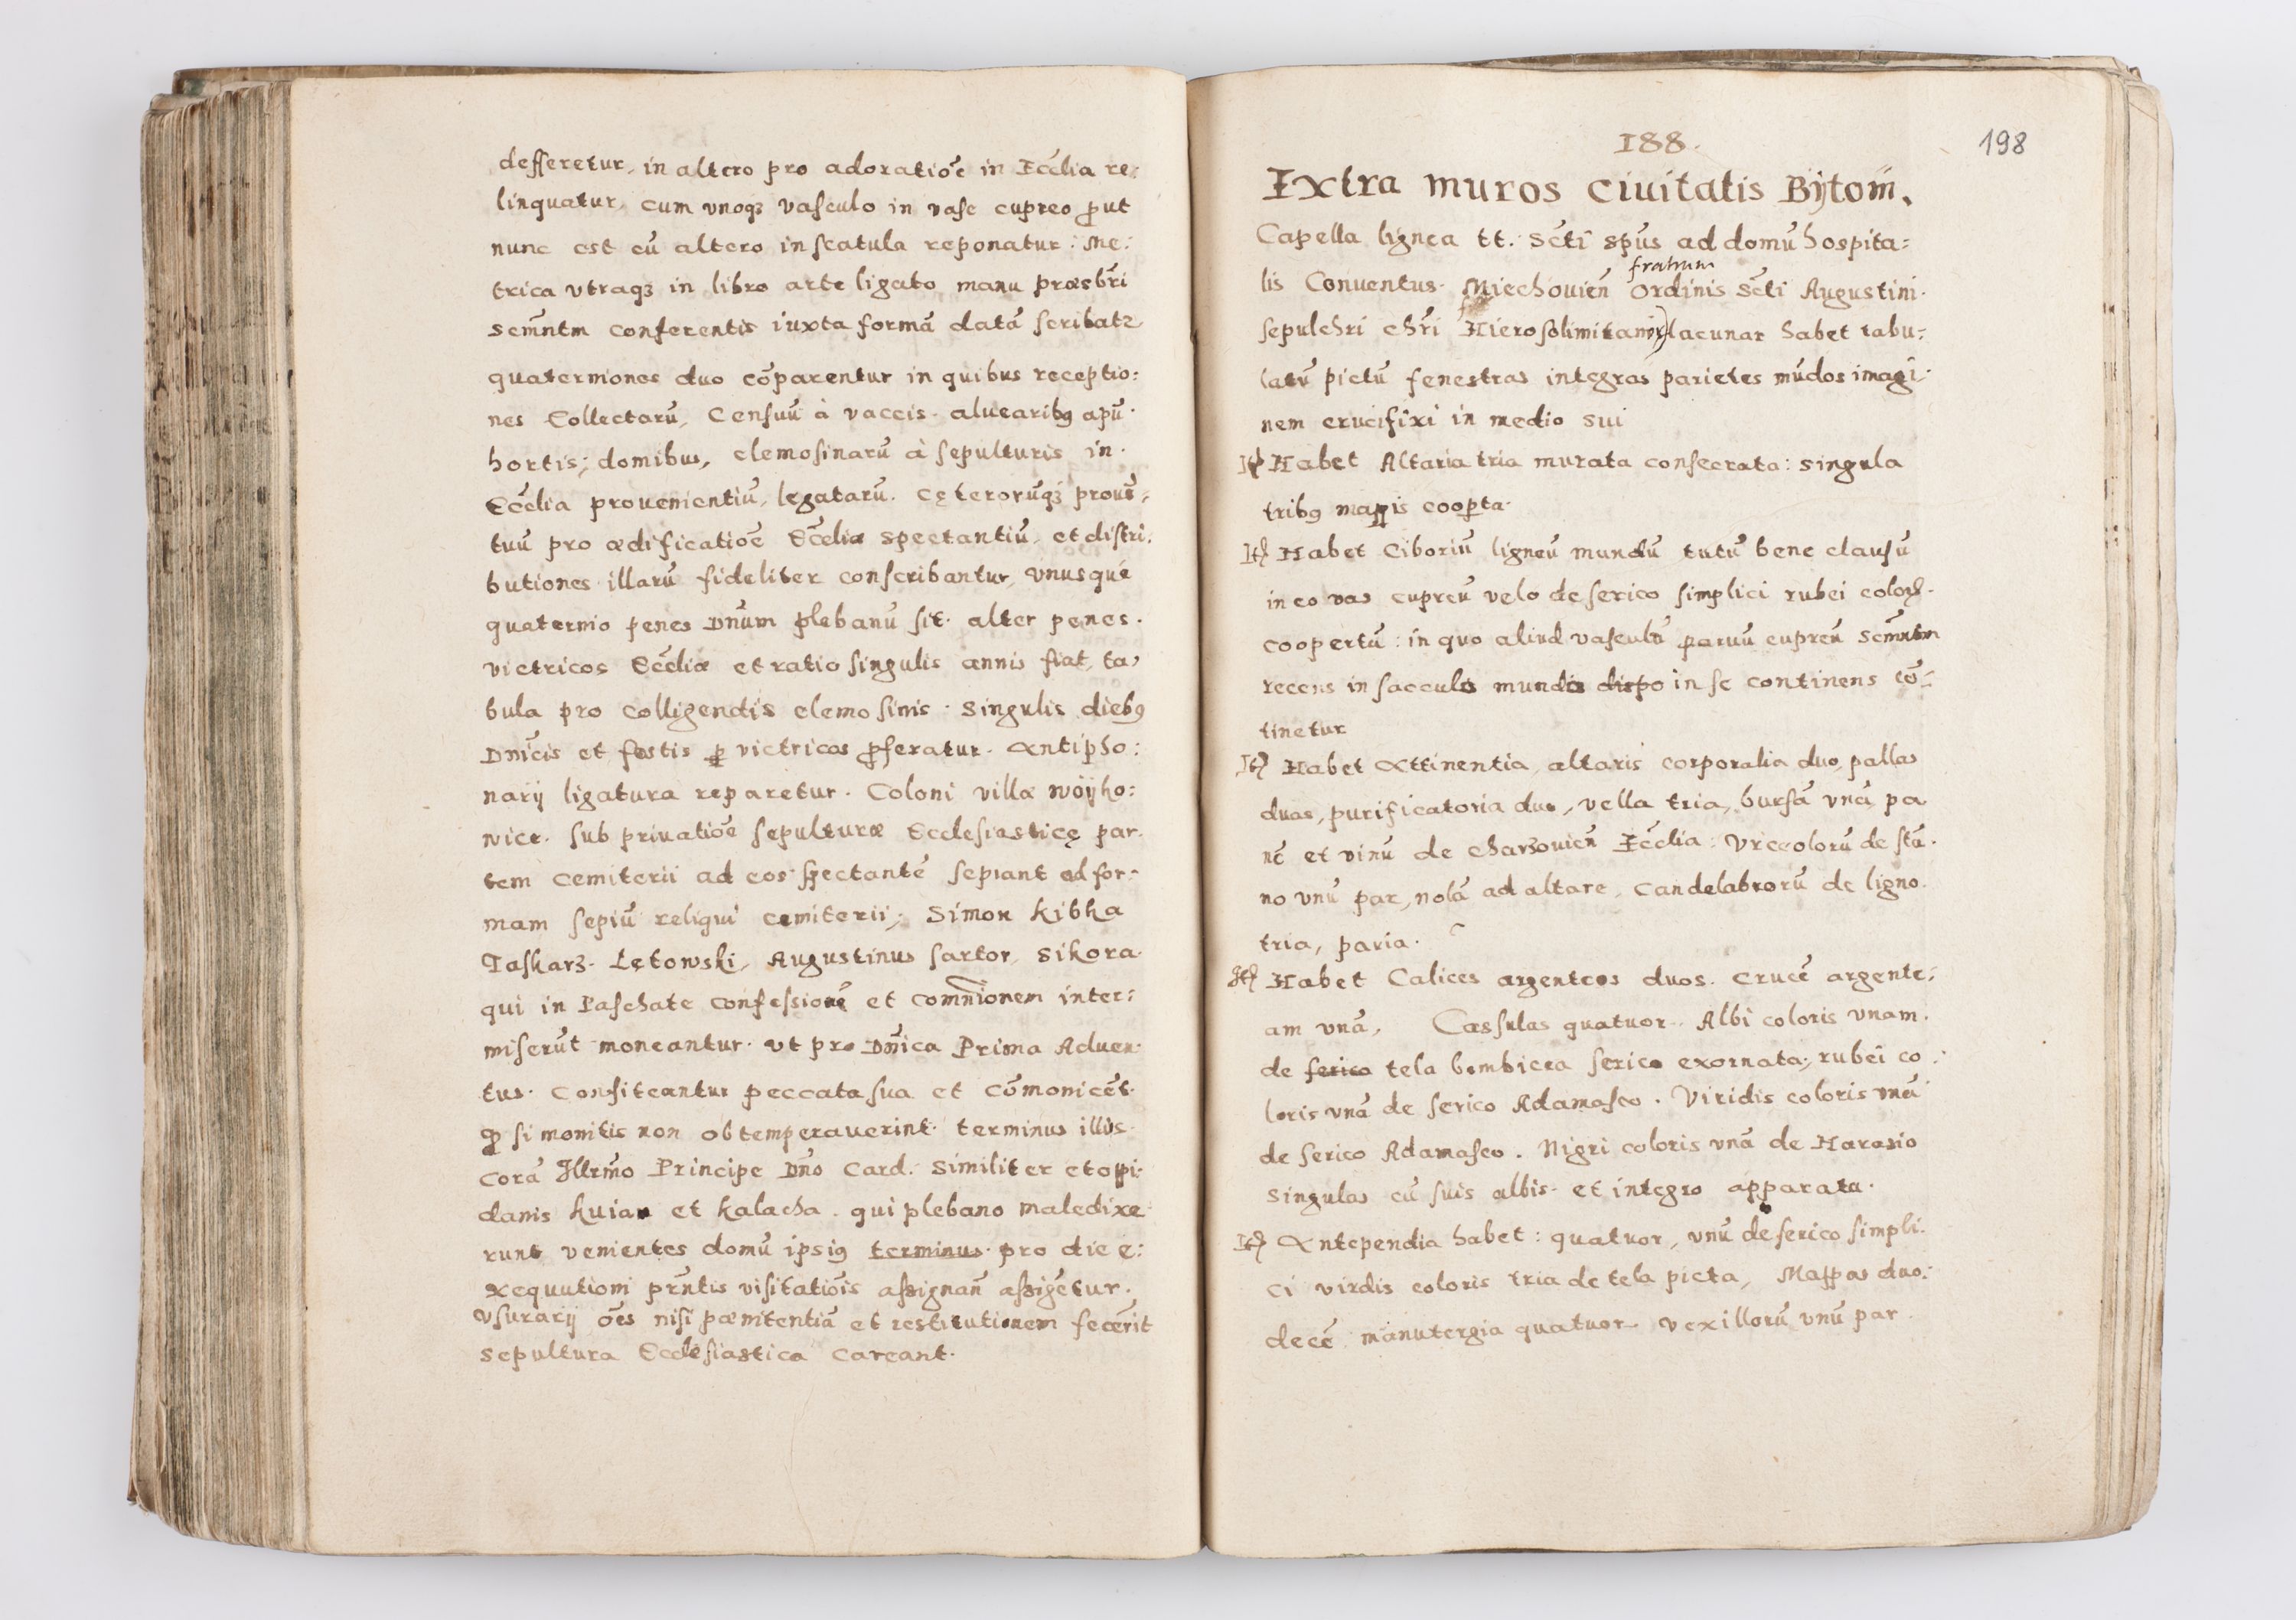 defferetur, in altero pro adoratiōe in Ecc̄lia re:
linquatur, cum vnoqȝ vasculo in vase cupreo ꝓut
nunc est cū altero in scatula reponatur. Me:
trica vtraqȝ in libro arte ligato manu præsbr̄i
Scm̄ntm conferentis iuxta formā datā scribatr
quaterniones duo cōparentur in quibus receptio:
nes Collectarū, Censuū à vaccis. aluearibꝰ apū.
hortis, domibus, elemosinarū à sepulturis in.
Ecc̄lia prouenientiū, legatarū. Cęterorūqȝ prouē:
tuū pro ædificatiōe Ecc̄liæ spectantiū, et distri:
butiones illarū fideliter conscribantur, vnusqué
quaternio penes Dn̄um plebanū sit. alter penes.
victricos Ecc̄liæ et ratio singulis annis fiat, ta:
bula pro colligendis elemosinis. Singulis diebꝰ
Dn̄icis et festis ꝑ victricos ꝓferatur. Antipho:
narij ligatura reparetur. Coloni villæ Woijko:
wice. sub priuatiōe sepulturæ Ecclesiasticę par.
tem Cemiterii ad eos spectantē sepiant ad for:
mam sepiū reliqui cemiterii, Simon Kibka
Taskarz. Lętowski, Augustinus sartor, Sikora.
qui in Paschate confessionē et comn̄ionem inter:
miserūt moneantur. vt pro Dn̄ica Prima Aduen.
tus. Confiteantur peccata sua et cōmonicēt.
ꝙ si monitis non obtemperauerint. terminus illis.
corā Jllrm̄o Principe Dn̄o Card. Similiter et opi.
danis Kuian et Kalacha. qui plebano maledixe
runt venientes domū ipsiꝰ terminus. pro die e:
xequutioni prn̄tis visitatiōis assignan̄ assigētur.
Vsurarij ōes nisi pænitentiā et restitutionem fecērit
sepultura Ecclesiastica careant.
188.
198
Extra muros Ciuitatis Bÿtom̄.
Capella lignea tt. Sc̄ti Sp̄us ad domū hospita:
fratrum
lis Conuentus. Miechouien̄ Ordinis Sc̄ti Augustini.
sepulchri Chr̄i Hierosolimitani lacunar habet tabu:
latū pictū fenestras integras parietes mūdos imagi.
nem crucifixi in medio sui
It Habet Altaria tria murata consecrata: singula
tribꝰ mappis cooꝑta.
It Habet Ciboriū ligneū mundū tutū bene clausū
in eo vas cupreū velo de serico simplici rubei colors.
coopertū: in quo aliud vasculū paruū cupreū Scm̄ntm
recens in sacculo mundo dispo in se continens cō:
tinetur
It Habet Attinentia, altaris corporalia duo, pallas
duas, purificatoria duo, vella tria, bursā vnā, pa
nē et vinū de Charzouien̄ Ecc̄lia. Vrceolorū de stā.
no vnū par, nolā ad altare, Candelabrorū de ligno.
tria, paria.
Jt Habet Calices argenteos duos. Crucē argente:
am vnā, Cassulas quatuor. Albi coloris vnam.
de serico tela bombicea serico exornata, rubei co:
loris vnā de serico Adamasco. Viridis coloris vnā
de serico Adamasco. Nigri coloris vnā de Harasio
singulas cū suis albis. et integro apparatu.
It Antependia habet: quatuor, vnū de serico simpli.
ci virdis coloris tria de tela picta, Mappas duo:
decē. manutergia quatuor. vexillorū vnū par.